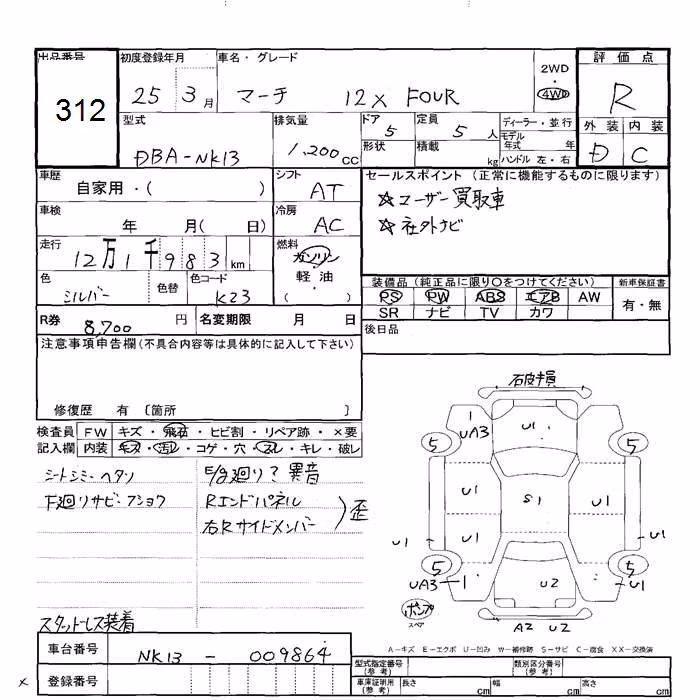 出品番号
312
初度登録年月
25 3月
車名・グレード
マーチ 12X FOUR
2WD
・
4WD
評価点
R
外装 内装
D C
型式
DBA-NK13
排気量
1,200cc
ドア
5
定員
5人
形状
積載
kg
ディーラー・並行
モデル年式 年
ハンドル 左・右
車歴
自家用・( )
シフト
AT
車検
年 月( 日)
冷房
AC
走行
12万1千983km
燃料
ガソリン
軽油
( )
色
シルバー
色替
色コード
K23
R券 8,700 円
名変期限 月 日
セールスポイント (正常に機能するものに限ります)
☆ユーザー買取車
☆社外ナビ
装備品(純正品に限り○をつけてください)
PS PW ABS エアB AW
SR ナビ TV カワ
新車保証書
有・無
後日品
注意事項申告欄(不具合内容等は具体的に記入して下さい)
修復歴 有 〔箇所 〕
検査員 FW キズ・飛石・ヒビ割・リペア跡・×要
記入欄 内装 キズ・汚レ・コゲ・穴・スレ・キレ・破レ
シートシミ・ヘタリ
下廻リサビ・フショク
E/G廻り?異音
Rエンドパネル
右Rサイドメンバー
歪
スタッドレス装着
石皮損
1
UA3
U1
5
5
U1
S1
U1
U1
U1
5
5
UA3
1
U2
U1
ポンプ
スペア
A2 U2
A−キズ E−エクボ U−凹み W−補修跡 S−サビ C−腐食 XX−交換済
車台番号
NK13 - 009864
登録番号
x
型式指定番号
(参考)
類別区分番号
(参考)
車庫証明用
(参考)
長さ cm
幅 cm
高さ cm